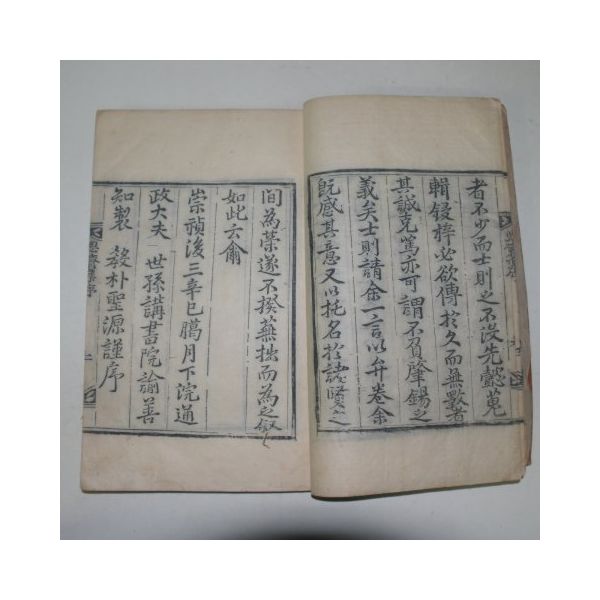 者不少而士則之不沒先懿蒐
輯鋟梓必欲傳於久而無斁者
其誠克篤亦可謂不負孝錫之
義矣士則請余一言以弁卷余
旣感其意又以托名於諸賢之
間為榮遂不揆蕪拙而為之叙
如此云爾
崇禎後三辛巳臈月下浣通
政大夫 世孫講書院諭善
知製 敎朴聖源謹序